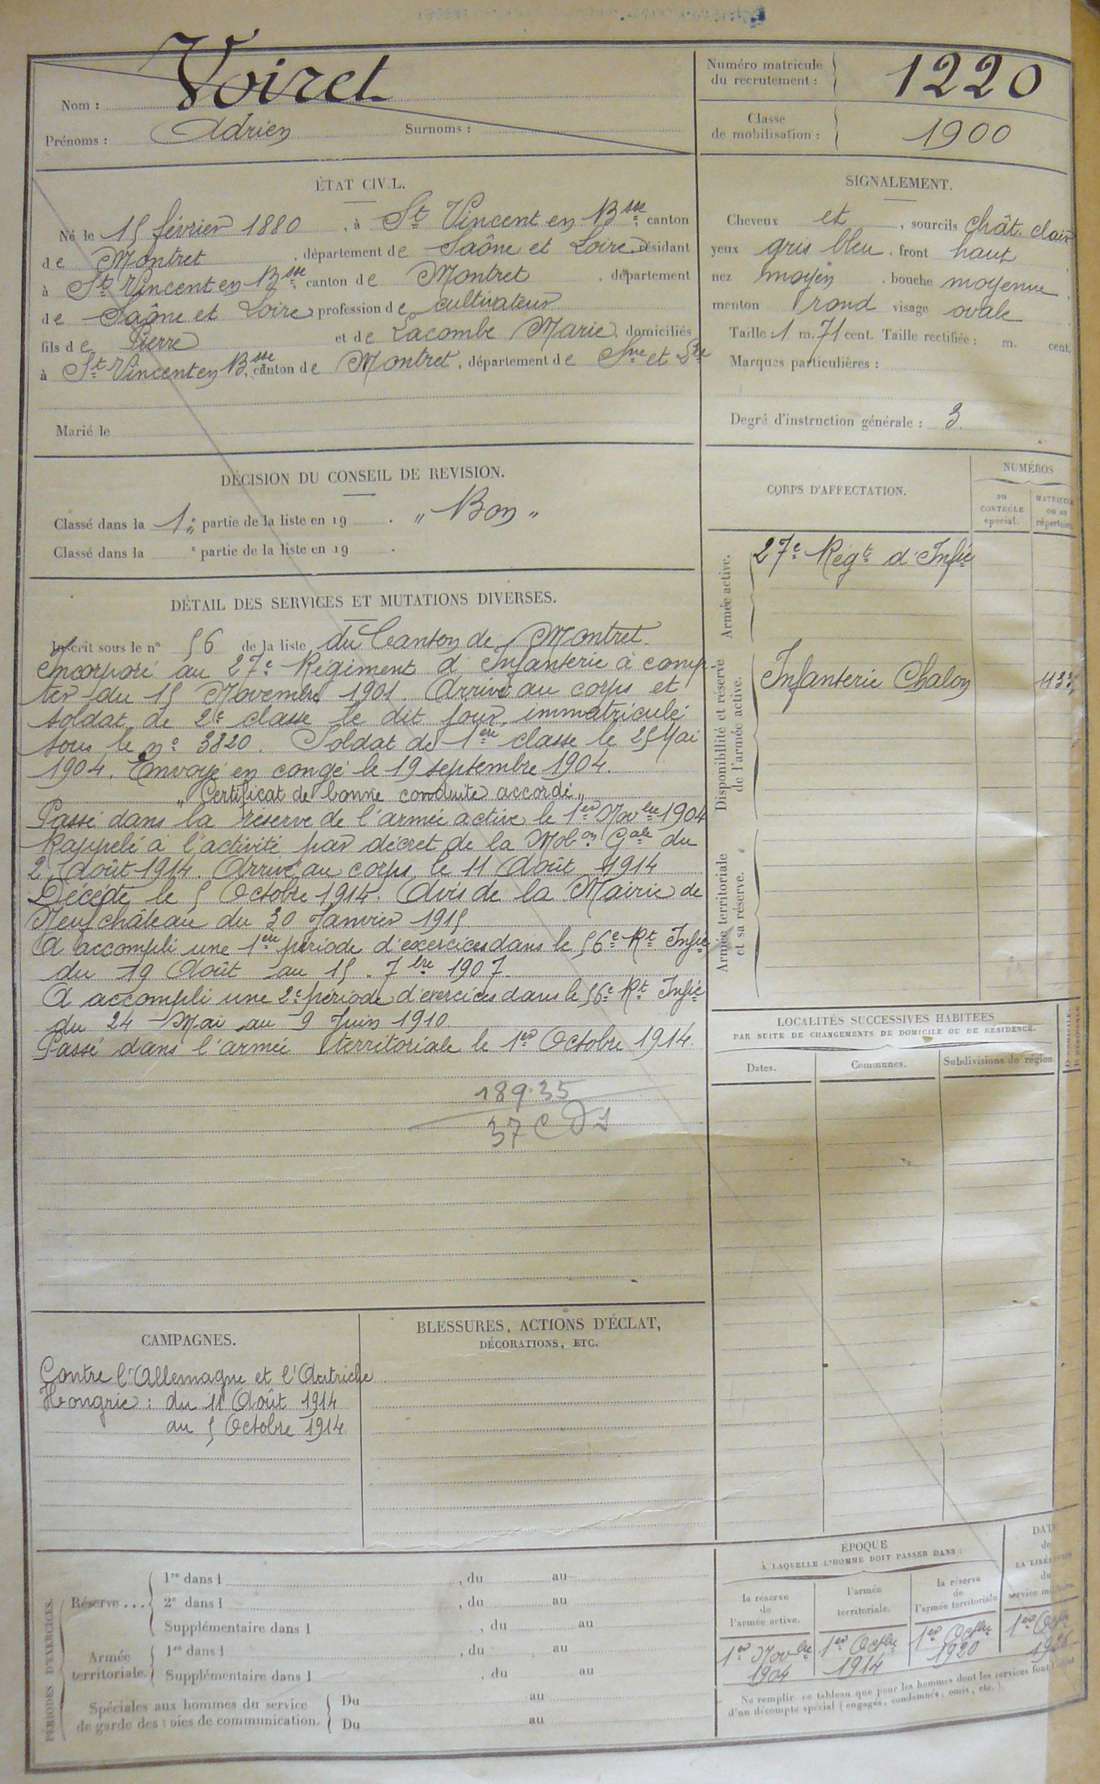 Nom : Voiret
Prénoms : Adrien Surnoms :
Numéro matricule du recrutement : 1220
Classe de mobilisation : 1900
ÉTAT CIVIL.
Né le 15 février 1880, à St Vincent en Bsse canton
de Montret, département de Saône et Loire résidant
à St Vincent en Bsse canton de Montret, département
de Saône et Loire profession de cultivateur
fils de Pierre et de Lacombe Marie domiciliés
à St Vincent en Bsse canton de Montret, département de Sne et Lre
Marié le
SIGNALEMENT.
Cheveux et, sourcils chât. clair
yeux gris bleu, front haut
nez moyen, bouche moyenne
menton rond visage ovale
Taille 1 m. 71 cent. Taille rectifiée : m. cent.
Marques particulières :
Degré d'instruction générale : 3
DÉCISION DU CONSEIL DE REVISION.
Classé dans la 1e partie de la liste en 19 . „ Bon „
Classé dans la e partie de la liste en 19 .
DÉTAIL DES SERVICES ET MUTATIONS DIVERSES.
Inscrit sous le n° 56 de la liste du Canton de Montret
Incorporé au 27e Régiment d'Infanterie à comp-
ter du 15 Novembre 1901. Arrivé au corps et
soldat de 2e classe le dit jour, immatriculé
sous le n° 3820. Soldat de 1ère classe le 25 Mai
1904. Envoyé en congé le 19 septembre 1904.
„ Certificat de bonne conduite accordé „
Passé dans la réserve de l'armée active le 1er Novbre 1904
Rappelé à l'activité par décret de la Mobon Gale du
2 Août 1914. Arrivé au corps le 11 Août 1914
Décédé le 5 Octobre 1914. Avis de la Mairie de
Neufchâteau du 30 Janvier 1915
A accompli une 1ère période d'exercices dans le 56e Rt Infie
du 19 Août au 15 7bre 1907.
A accompli une 2e période d'exercices dans le 56e Rt Infie
du 24 Mai au 9 Juin 1910.
Passé dans l'armée territoriale le 1er Octobre 1914.
189.35
37
CORPS D'AFFECTATION.
NUMÉROS
au contrôle spécial.
MATRICULE ou au répertoire.
Armée active.
27e Regt d'Infie
Disponibilité et réserve de l'armée active.
Infanterie Chalon
Armée territoriale et sa réserve.
LOCALITÉS SUCCESSIVES HABITÉES
PAR SUITE DE CHANGEMENTS DE DOMICILE OU DE RÉSIDENCE.
Dates. Communes. Subdivisions de région
CAMPAGNES.
Contre l'Allemagne et l'Autriche
Hongrie : du 11 Août 1914
au 5 Octobre 1914
BLESSURES, ACTIONS D'ÉCLAT,
DÉCORATIONS, ETC.
PÉRIODES D'EXERCICES.
Réserve ...
1re dans l , du au
2e dans l , du au
Supplémentaire dans l , du au
Armée territoriale.
1re dans l , du au
Supplémentaire dans l , du au
Spéciales aux hommes du service
de garde des voies de communication.
Du au
Du au
ÉPOQUE
À LAQUELLE L'HOMME DOIT PASSER DANS :
la réserve de l'armée active.
l'armée territoriale.
la réserve de l'armée territoriale
DATE de LA LIBÉRATION du service militaire
1er Novbre 1904
1er Octbre 1914
1er Octbre 1920
1er Octbre 1926
Ne remplir ce tableau que pour les hommes dont les services font l'objet
d'un décompte spécial (engagés, condamnés, omis, etc.).